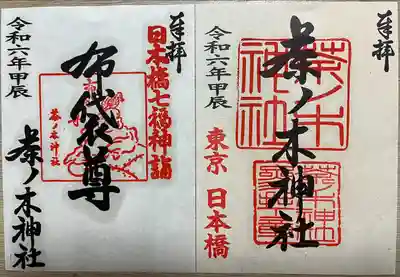 奉拝
茶ノ木神社
東京 日本橋
令和六年甲辰
奉拝
日本橋七福神詣
布袋尊
茶ノ木神社
令和六年甲辰
茶ノ木神社